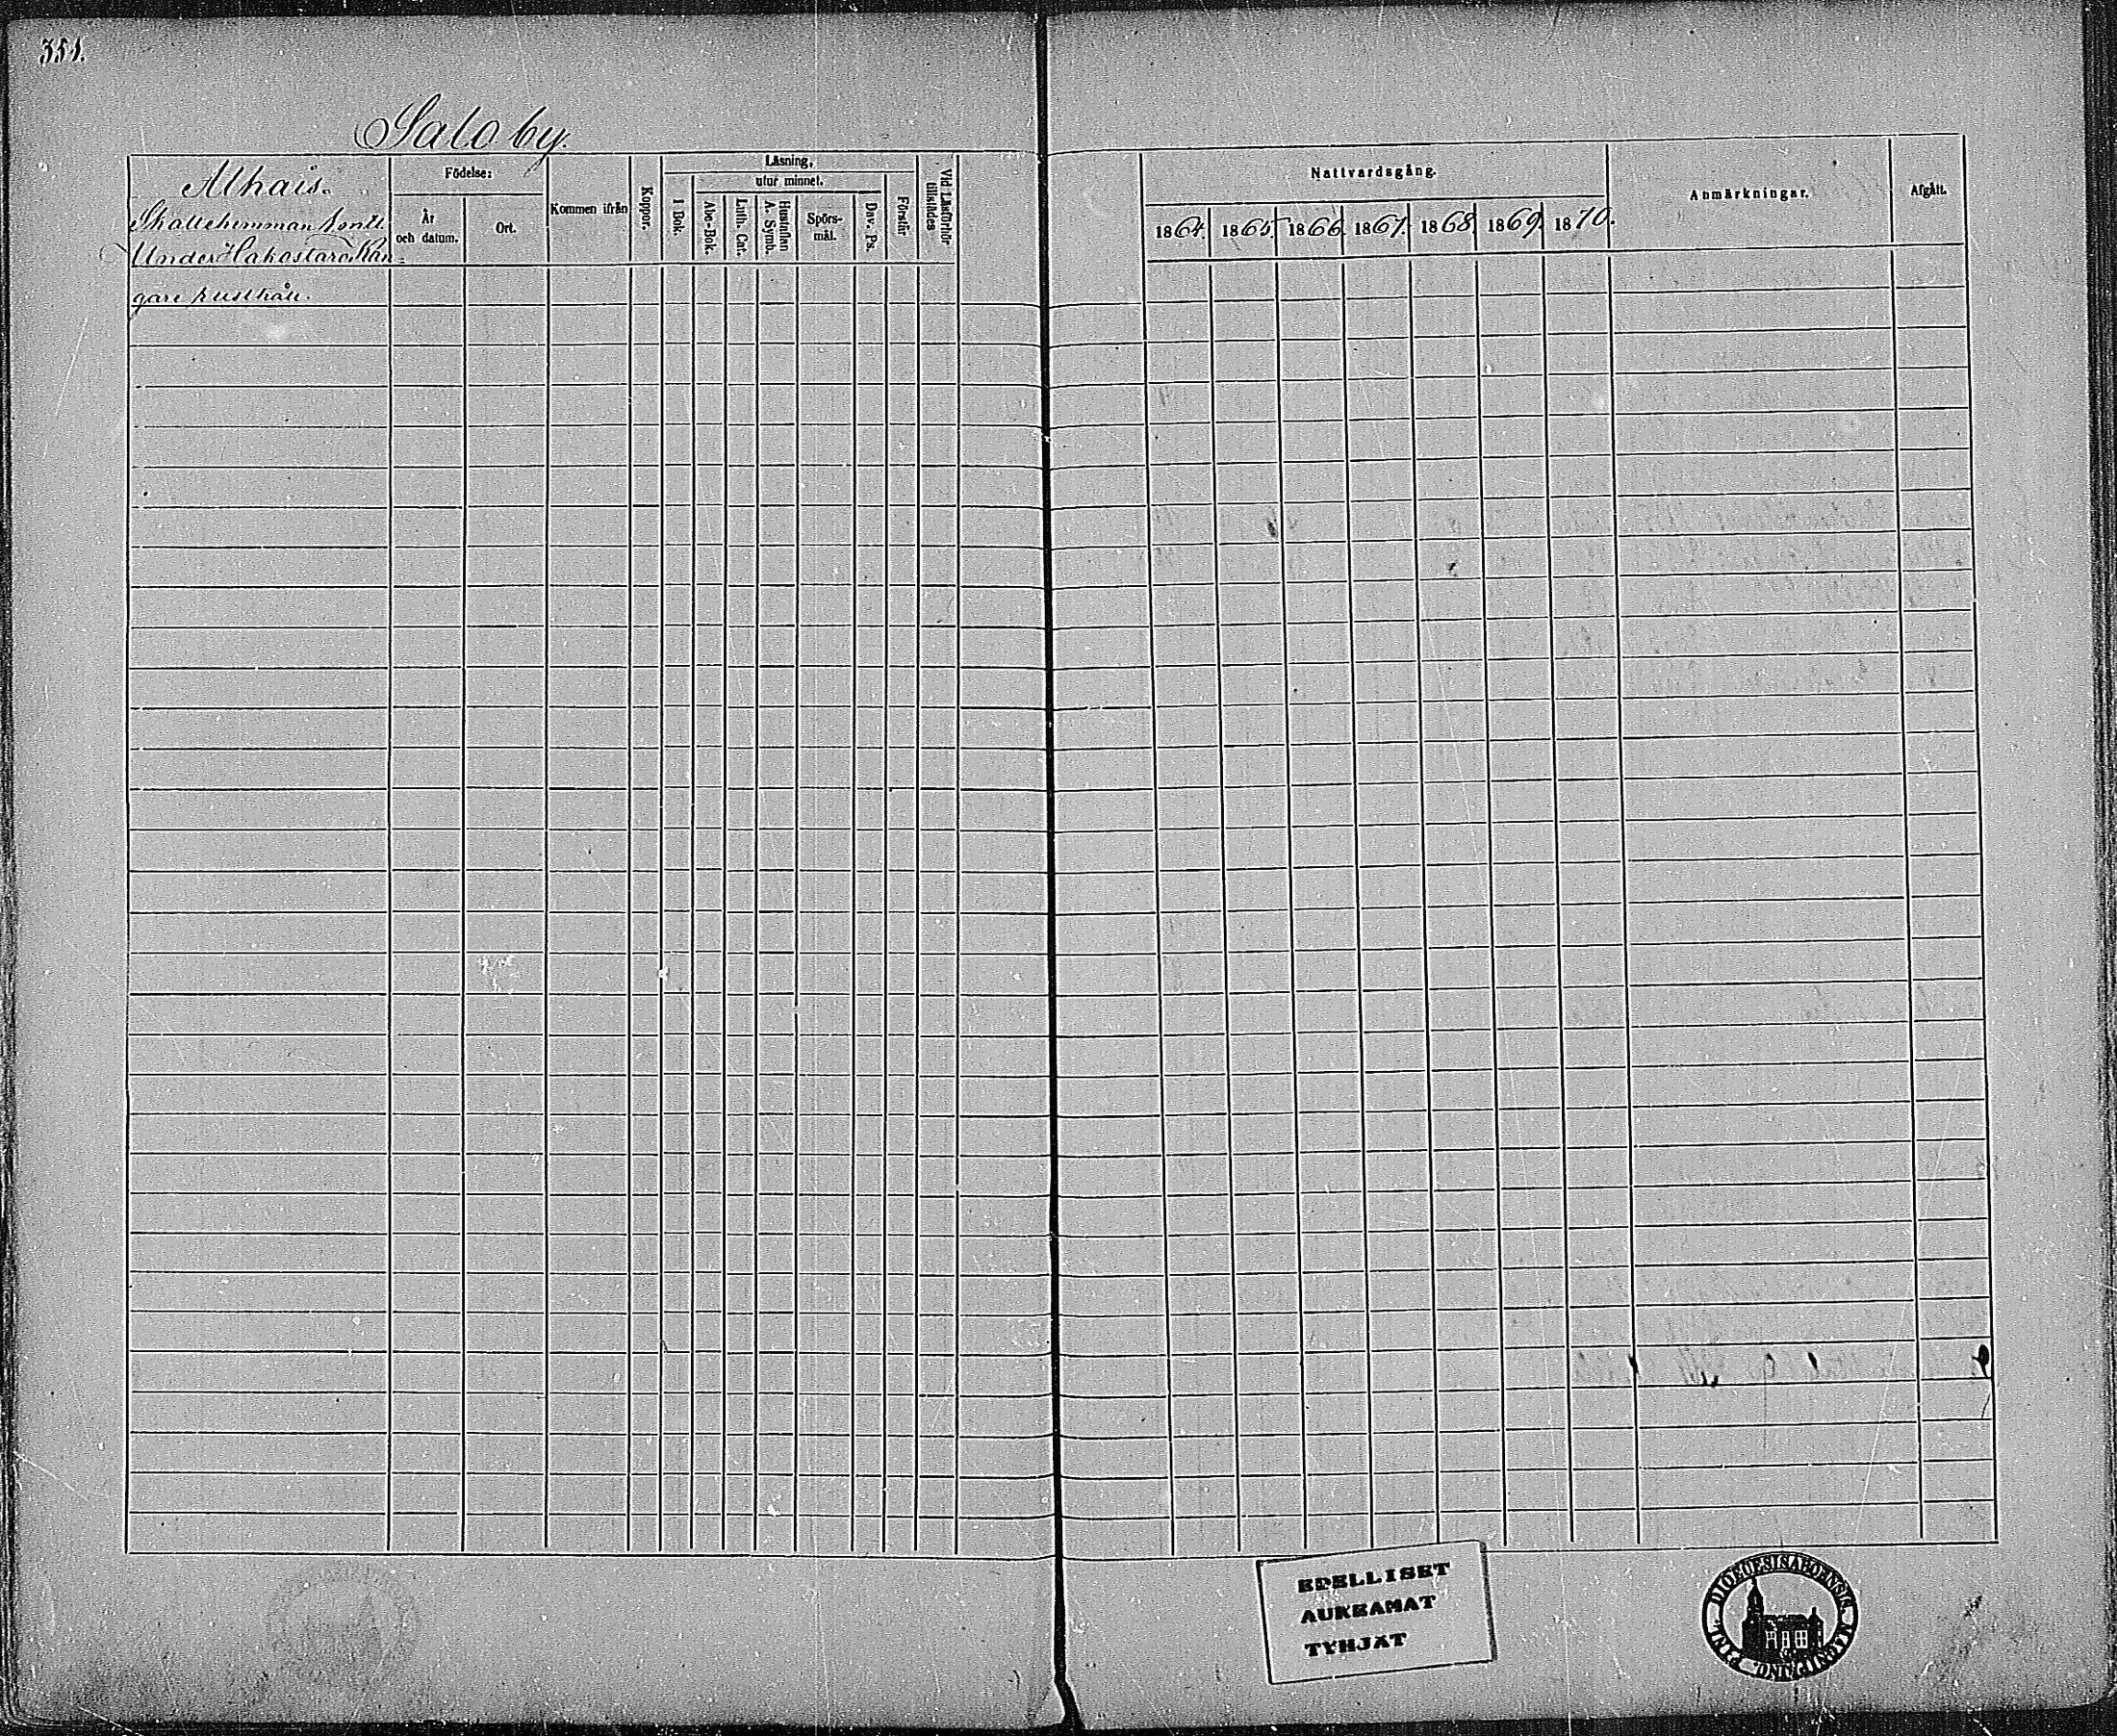 351.
Salo by.
Alhais.
Skattehemman
Under Hakostaro, Kan-
gare rusthåll.
Födelse:
År och datum.
Ort.
Kommen ifrån
Koppor.
Läsning,
utur minnet.
I Bok.
Abc-Bok.
Luth. Cat.
Hustaflan A. Symb.
Spörs-mål.
Dav. Ps.
Förstår
Vid Läsförhör tillstädes
Nattvardsgång.
1864. 1865. 1866. 1867. 1868. 1869. 1870.
Anmärkningar.
Afgått.
EDELLISET
AUKEAMAT
TYHJÄT